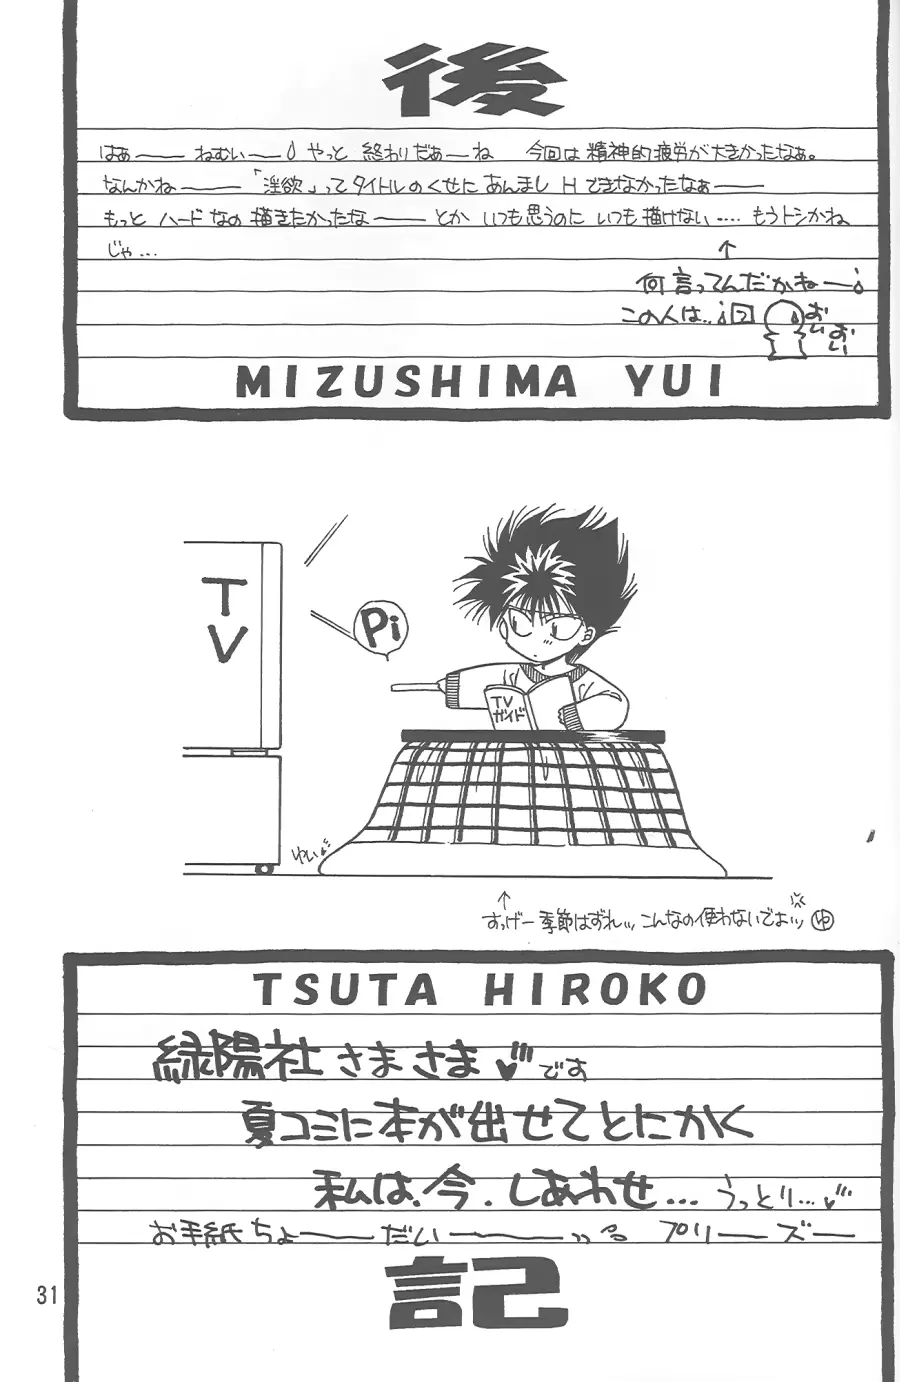 後
はぁ―― ねむい―― やっと 終わりだぁーね 今回は 精神的疲労が大きかったなぁ。
なんかね―― 「淫欲」ってタイトルのくせに あんまし H できなかったなぁ――
もっと ハードなの 描きたかったな―― とか いつも思うのに いつも描けない…. もうトシかね
じゃ…
↑
何言ってんだかねー
この人は..
おい
おい
MIZUSHIMA YUI
TV
Pi
TV
ガイド
ゆい
↑
すっげー 季節はずれッ、こんなの使わないでよッ ゆ
TSUTA HIROKO
緑陽社 さま さま♥です
夏コミに本が出せてとにかく
私は、今、しあわせ… うっとり…♥
お手紙ちょ――だい――ッッ プリーズー
記
31